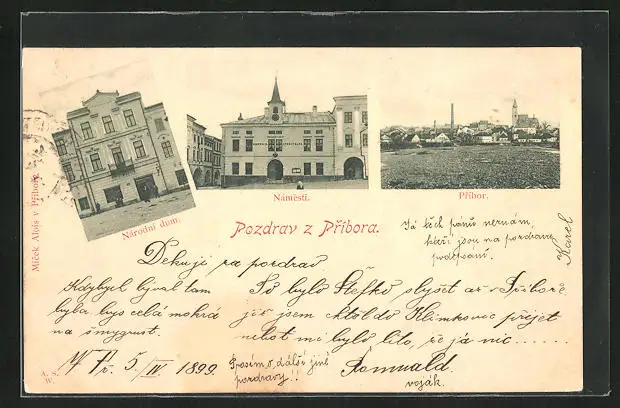 Národní dům.
Náměstí.
Příbor.
Míček Alois v Příboře.
Pozdrav z Příbora.
Já těch pánů neznám,
kteří jsou na pozdravu
podepsáni.
Karel
Děkuji za pozdrav
Kdybych býval tam
byla bys celá mokrá
na šmygrust.
To bylo slyšet až v Příboře
již jsem chtěl do Klimkovic přijet
neboť mi bylo líto, že já nic
5/IV. 1899.
Prosím o další jiné
pozdravy!!
Romuald.
voják.
A. S.
W.